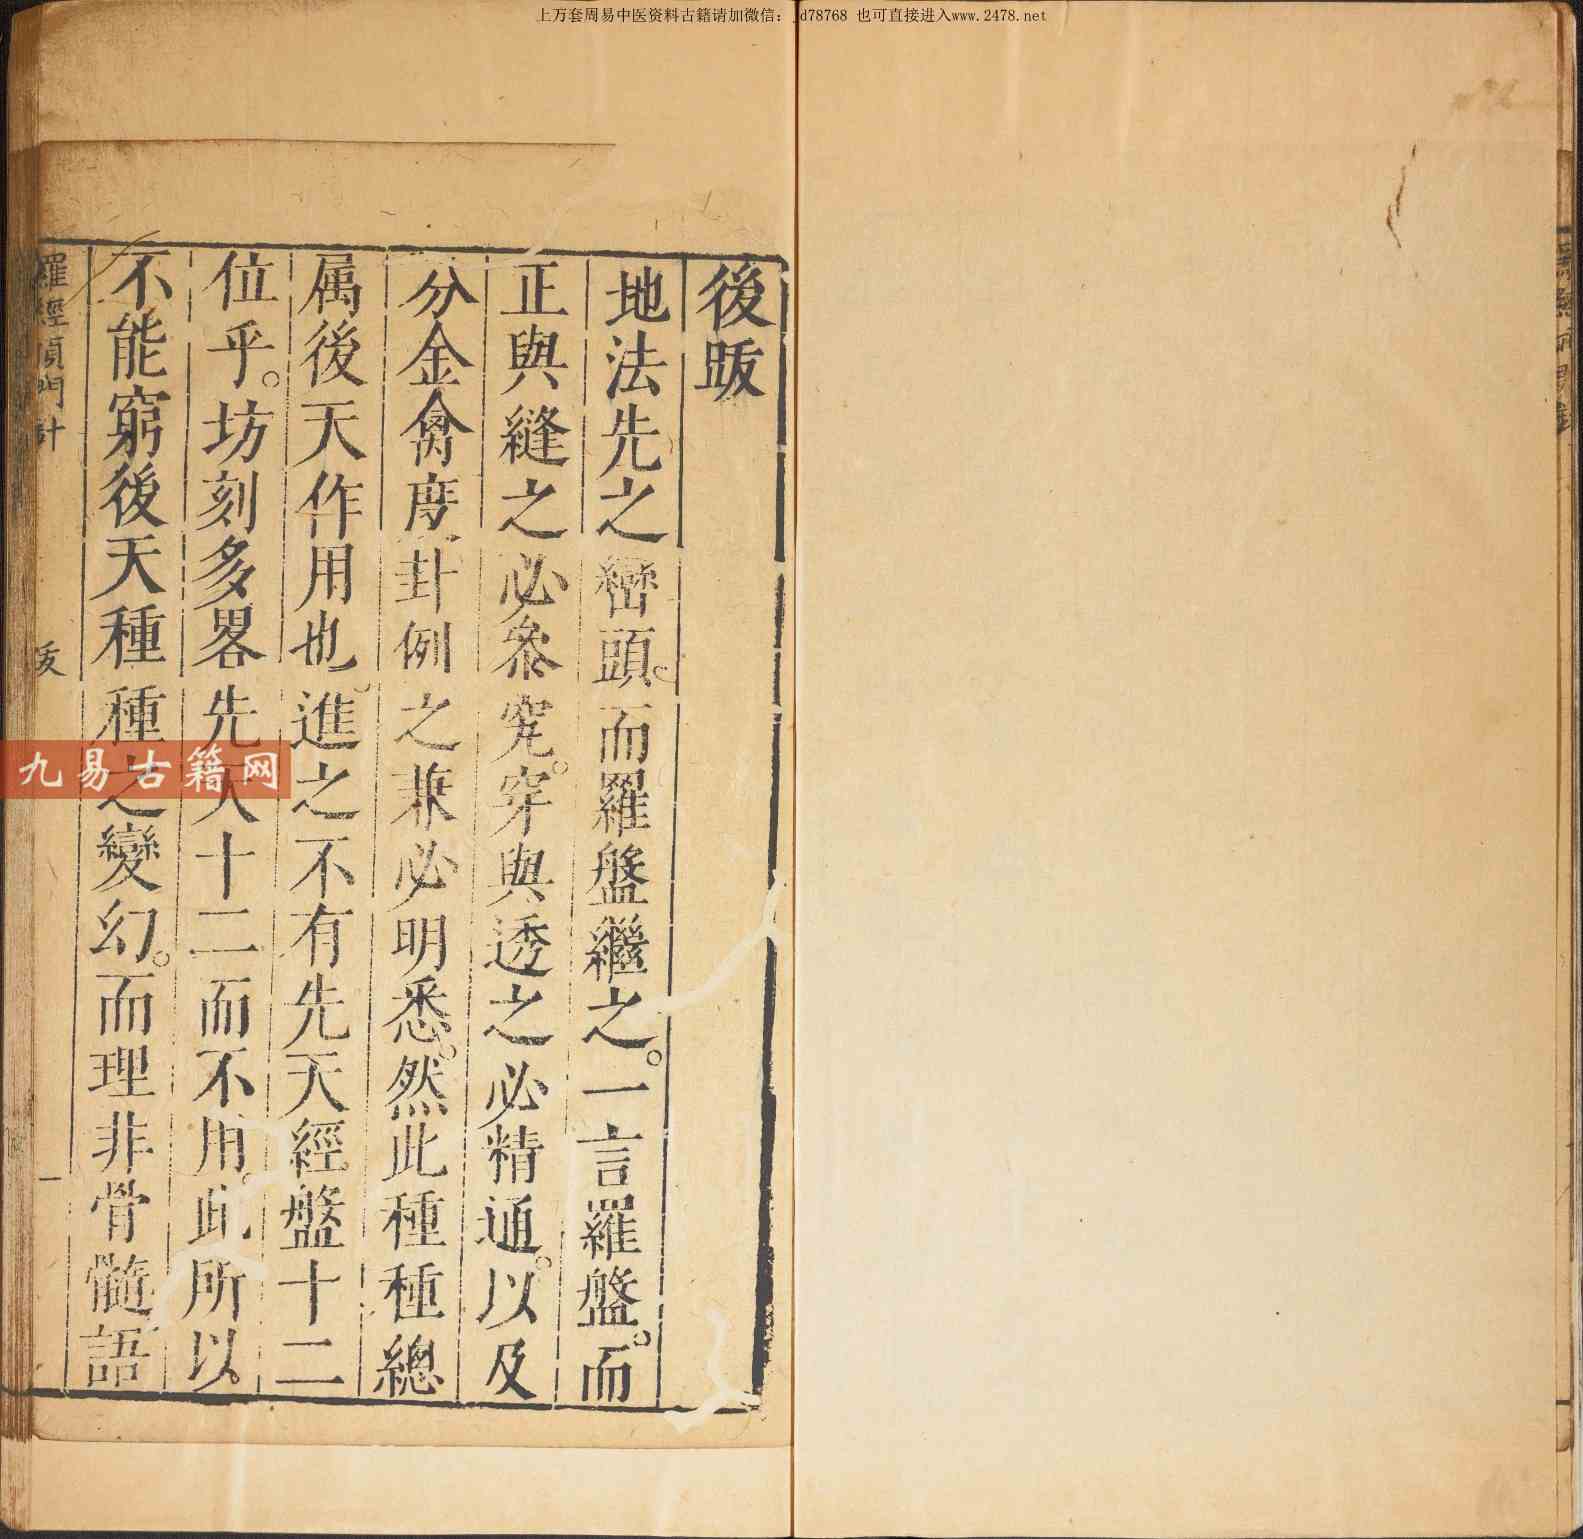 上万套周易中医资料古籍请加微信：jd78768 也可直接进入www.2478.net
後跋
地法先之巒頭。而羅盤繼之。一言羅盤。而
正與縫之必叅究。穿與透之必精通。以及
分金禽度卦例之兼必明悉。然此種種總
属後天作用也。進之不有先天經盤十二
位乎。坊刻多畧先天十二而不用。此所以
不能窮後天種種之變幻。而理非骨髓語
羅經頂門針
跋
一
九易古籍网